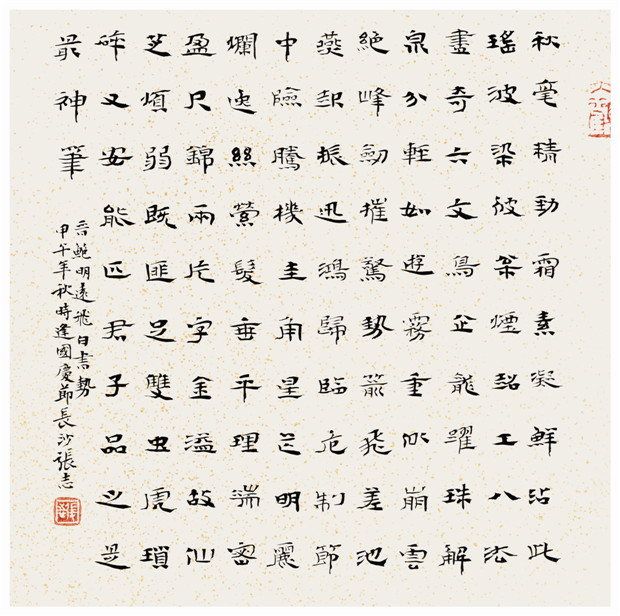 秋毫精勁霜素凝鮮沾此
瑤波染彼枀煙超工八法
畫奇六文鳥企龍躍珠解
泉分輕如遊霧重似崩雲
絕峰劍摧驚勢箭飛差池
燕起振迅鴻歸臨危制節
中險騰機圭角星芒明麗
爛逸絲縈髮垂平理端密
盈尺錦兩片字金溢故仙
芝煩弱既匪足雙虫虎瑣
碎又安能匹君子品之是
最神筆
晉鮑明遠飛白書勢
甲午年秋時逢國慶節長沙張志